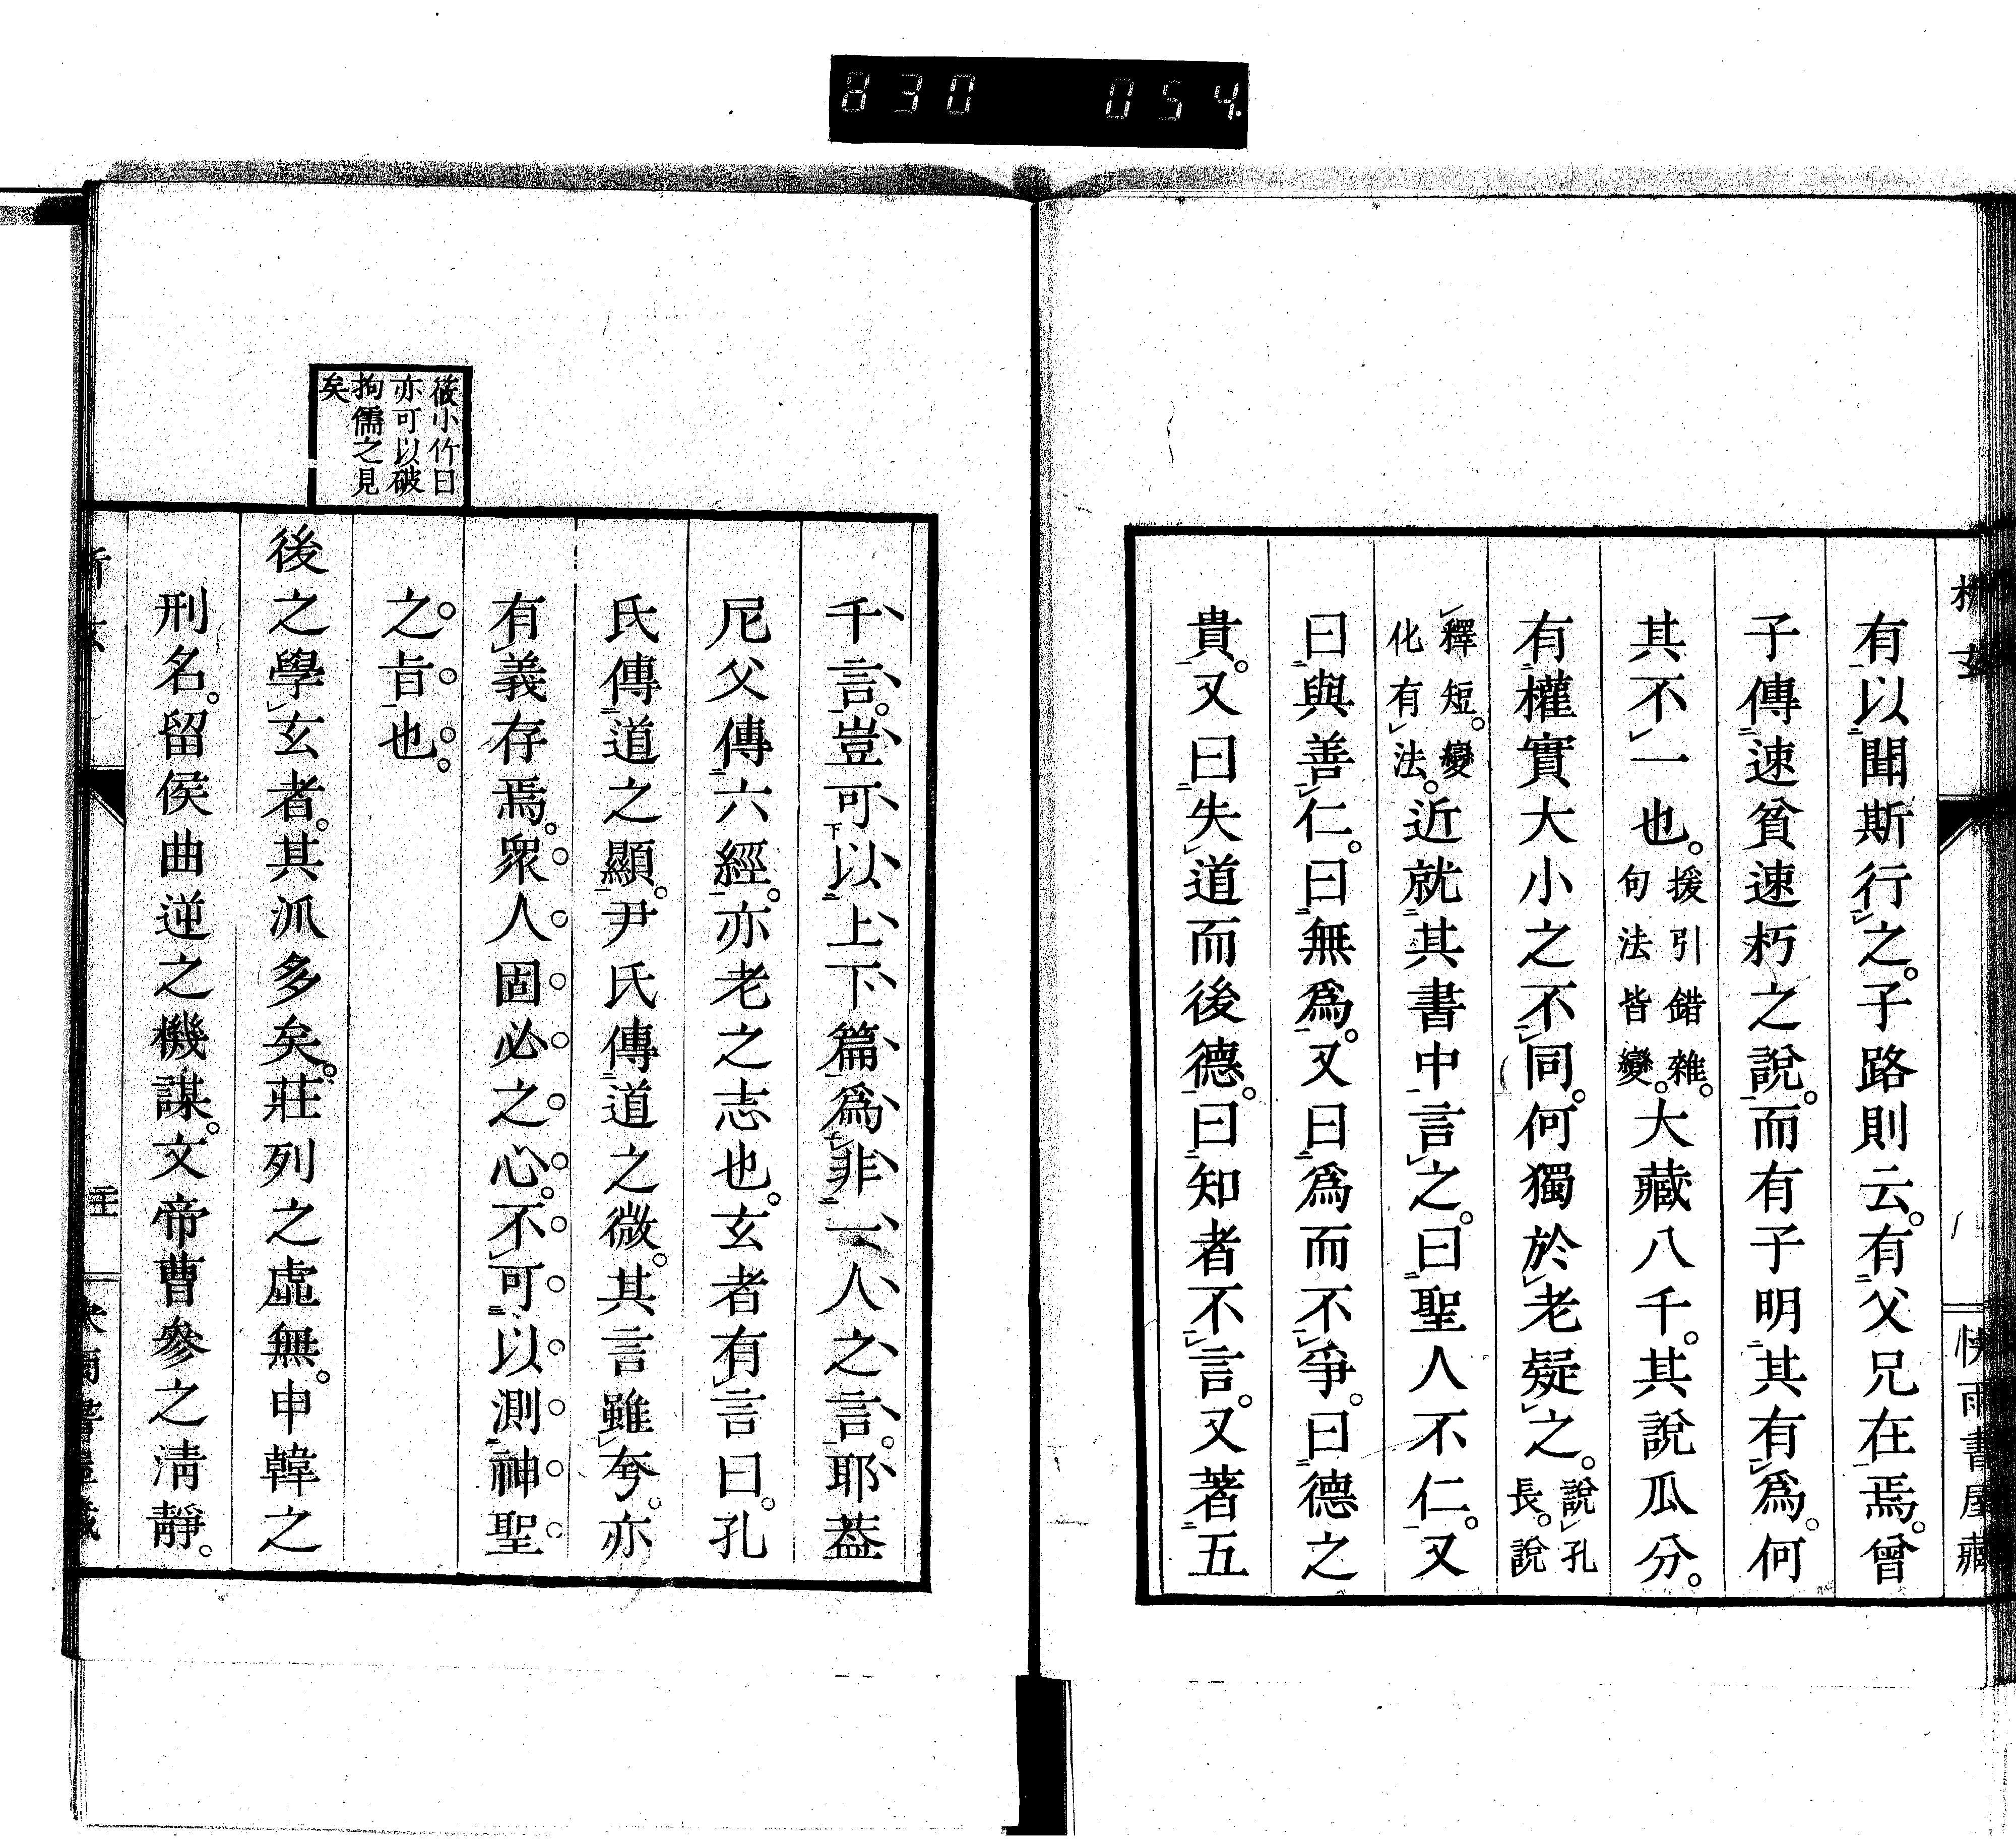 830 054
析玄
快雨書屋藏
有以聞斯行之。子路則云。有父兄在焉。曾
子傳速貧速朽之說。而有子明其有爲。何
其不一也。援引錯雜。句法皆變。大藏八千。其說瓜分。
有權實大小之不同。何獨於老疑之。說孔長。說
釋短。變化有法。近就其書中言之。曰聖人不仁。又
曰與善仁。曰無爲。又曰爲而不爭。曰德之
貴。又曰失道而後德。曰知者不言。又著五
千言。豈可以上下篇爲非一人之言。耶葢
尼父傳六經。亦老之志也。玄者有言曰。孔
氏傳道之顯。尹氏傳道之微。其言雖夸。亦
有義存焉。衆人固必之心。不可以測神聖
之旨也。
筱小竹曰
亦可以破
拘儒之見
矣
後之學玄者。其派多矣。莊列之虛無。申韓之
刑名。留侯曲逆之機謀。文帝曹參之淸靜。